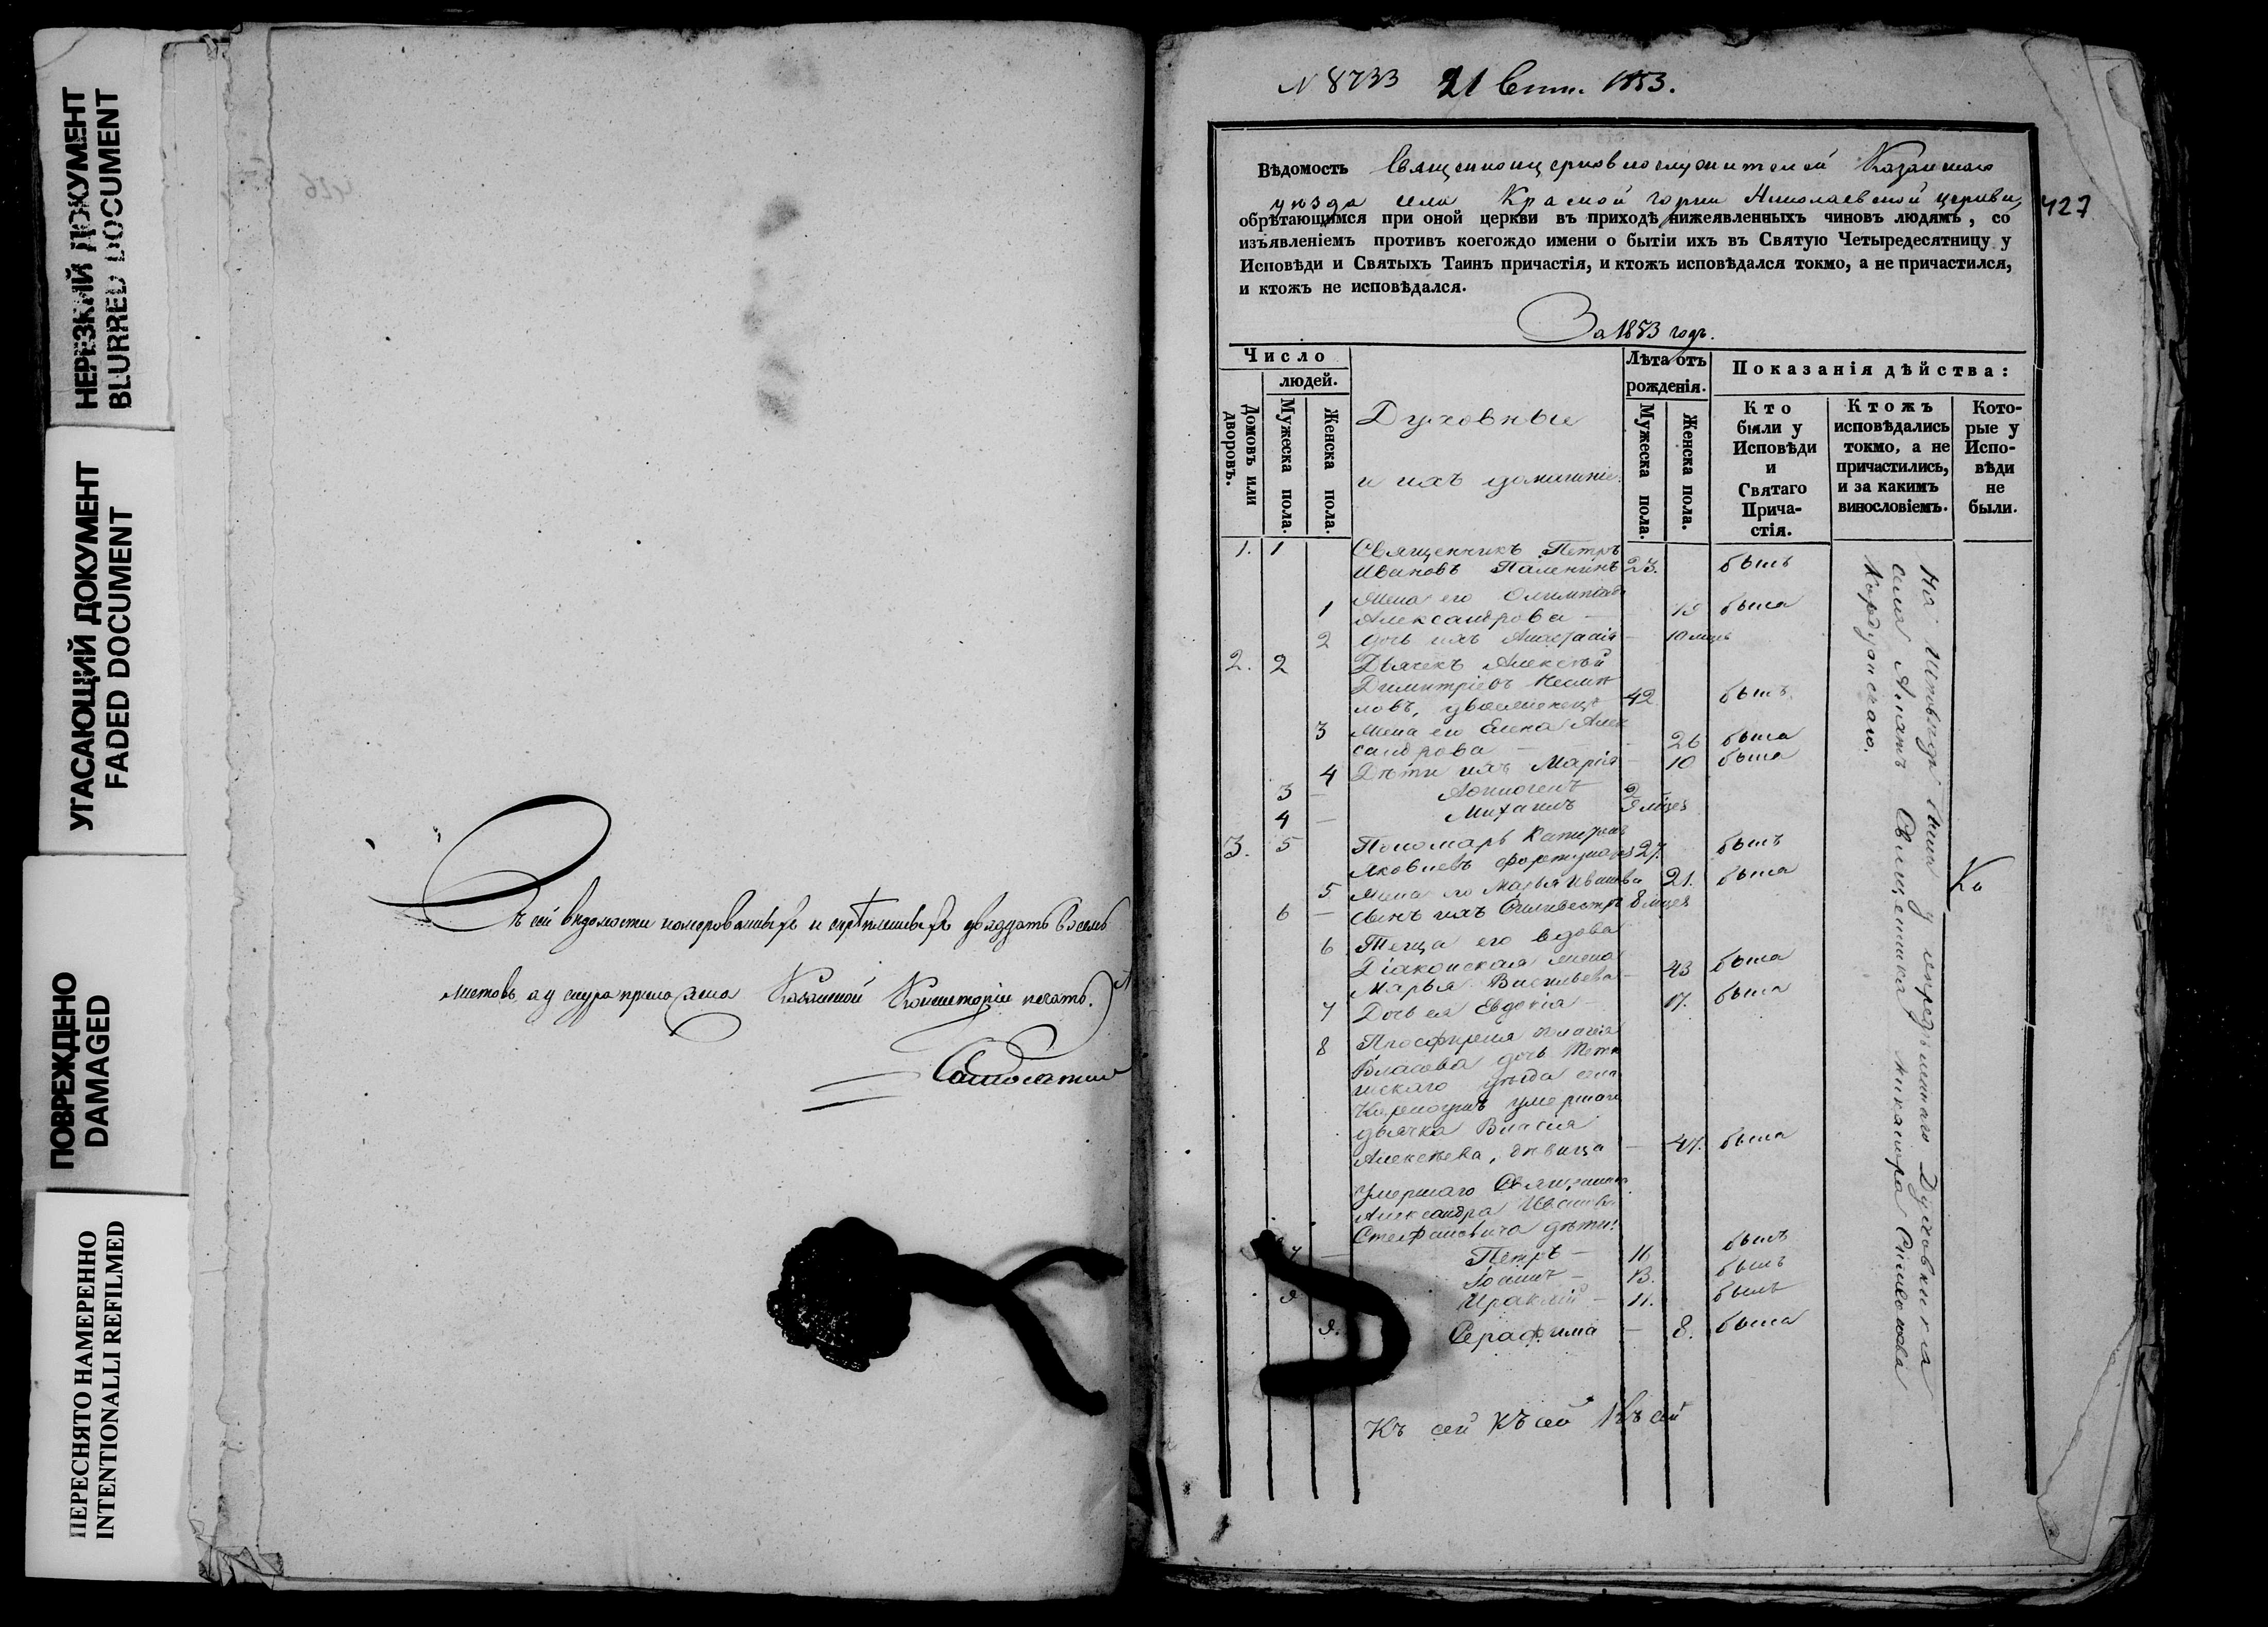 НЕРЕЗКИЙ ДОКУМЕНТ
BLURRED DOCUMENT
УГАСАЮЩИЙ ДОКУМЕНТ
FADED DOCUMENT
ПОВРЕЖДЕНО
DAMAGED
ПЕРЕСНЯТО НАМЕРЕННО
INTENTIONALLI REFILMED
Въ сей вѣдомости номерованныхъ и скрѣпленныхъ двадцать восемь
листовъ, а у снура приложена Казанской Консисторіи печать.
N 8733 21 Сент. 1853.
Вѣдомость Священноцерковнослужителей Казанскаго
уѣзда села Красной горки Николаевской церкви,
427
обрѣтающимся при оной церкви въ приходѣ нижеявленныхъ чиновъ людямъ, со
изъявленіемъ противъ коегождо имени о бытіи ихъ въ Святую Четыредесятницу у
Исповѣди и Святыхъ Таинъ причастія, и ктожъ исповѣдался токмо, а не причастился,
и ктожъ не исповѣдался.
За 1853 годъ.
Число
людей.
Домовъ или дворовъ.
Мужеска пола.
Женска пола.
Духовные
и ихъ домашніе.
Лѣта отъ
рожденія.
Мужеска пола.
Женска пола.
Показанія дѣйства:
Кто
были у
Исповѣди
и
Святаго
Прича-
стія.
Ктожъ
исповѣдались
токмо, а не
причастились,
и за какимъ
винословіемъ.
Кото-
рые у
Испо-
вѣди
не
были.
1. 1 Священникъ Петръ
Ивановъ 23. былъ
1 Жена его Олимпіада
Александрова — 19 была
2 дочь ихъ Анастасія — 10 мцъ
2. 2 Дьячекъ Алексѣй
Димитріевъ
42 былъ
3 Жена его Елена Алек
сандрова — 26 была
4 Дѣти ихъ Марія — 10 была
3 —
4 — Михаилъ мцев
3. 5 Пономарь Капитонъ
Яковлевъ 27. былъ
5 Жена его Марья Иванова 21. была
6 — Сынъ ихъ Сильвестръ 8 мцев
6 Теща его вдова
Діаконская жена
Марья Васильева — 43 была
7 Дочь ея Евдокія — 17. была
8 Просфирня Пелагія
Власова дочь
уѣзда села
умершаго
дьячка Власія
Алексѣева, дѣвица — 47. была
Умершаго Священника
Александра Иванова
Стефановича дѣти:
7 — Петръ — 16 былъ
Іоаннъ — 13. былъ
9 Ираклій — 11. былъ
9. Серафима — 8. была
На Исповѣди были у Духовника
села Священника Никанора
Ко
Къ сей Къ сей Къ сей